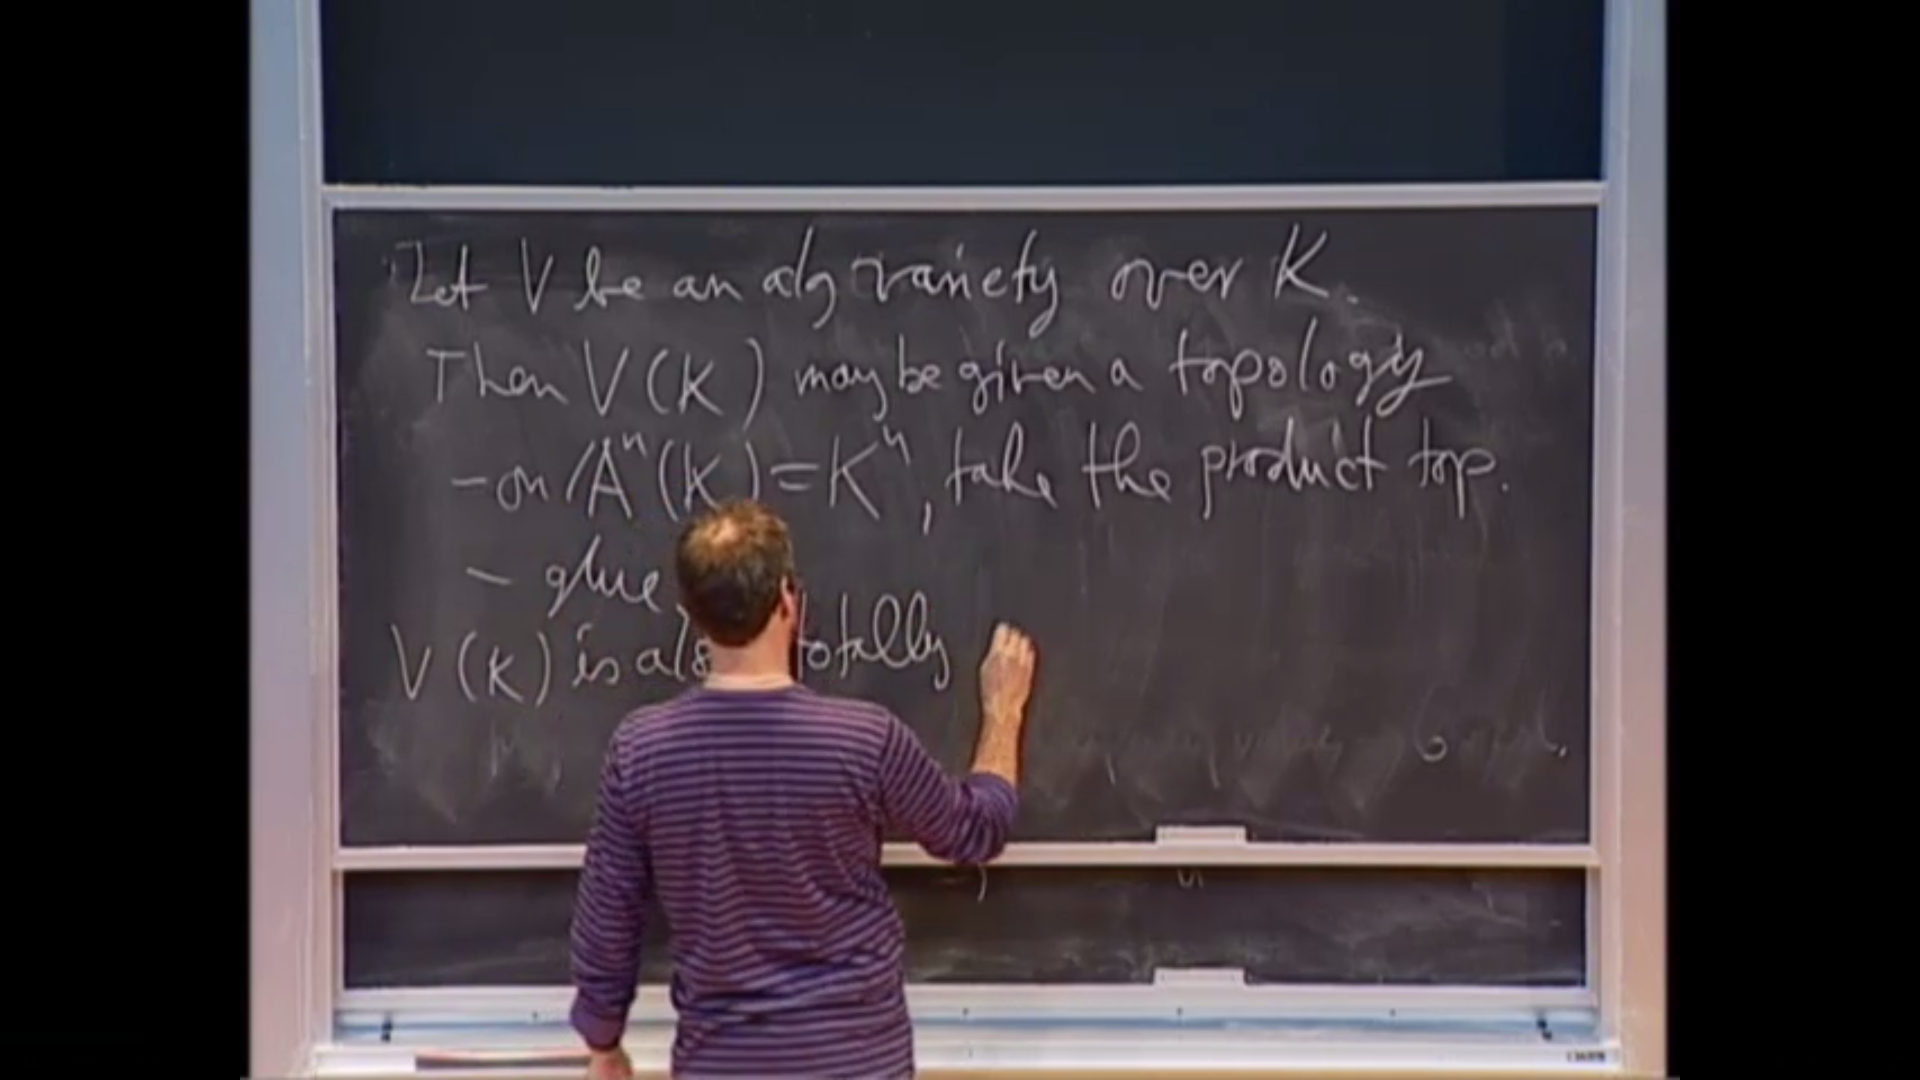 Let V be an alg variety over K.
Then V(K) may be given a topology
- on 𝔸ⁿ(K) = Kⁿ, take the product top.
- glue
V(K) is also totally